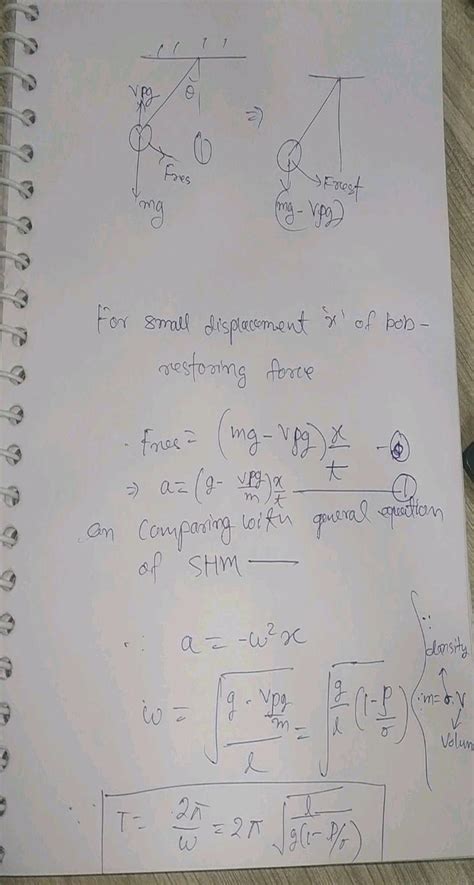 Vρg
θ
Fres
mg
⇒
Frest
(mg - Vρg)
For small displacement 'x' of bob-
restoring force
Fres = (mg - Vρg) x/t
⇒ a = (g - Vρg/m) x/t —— (1)
on comparing with general equation
of SHM —
∴ a = -ω²x
ω = √((g · Vρg/m)/l) = √(g/l (1 - ρ/σ))
∵ density
m = σ.V
Volum
∴ T = 2π/ω = 2π √(l/(g(1 - ρ/σ)))